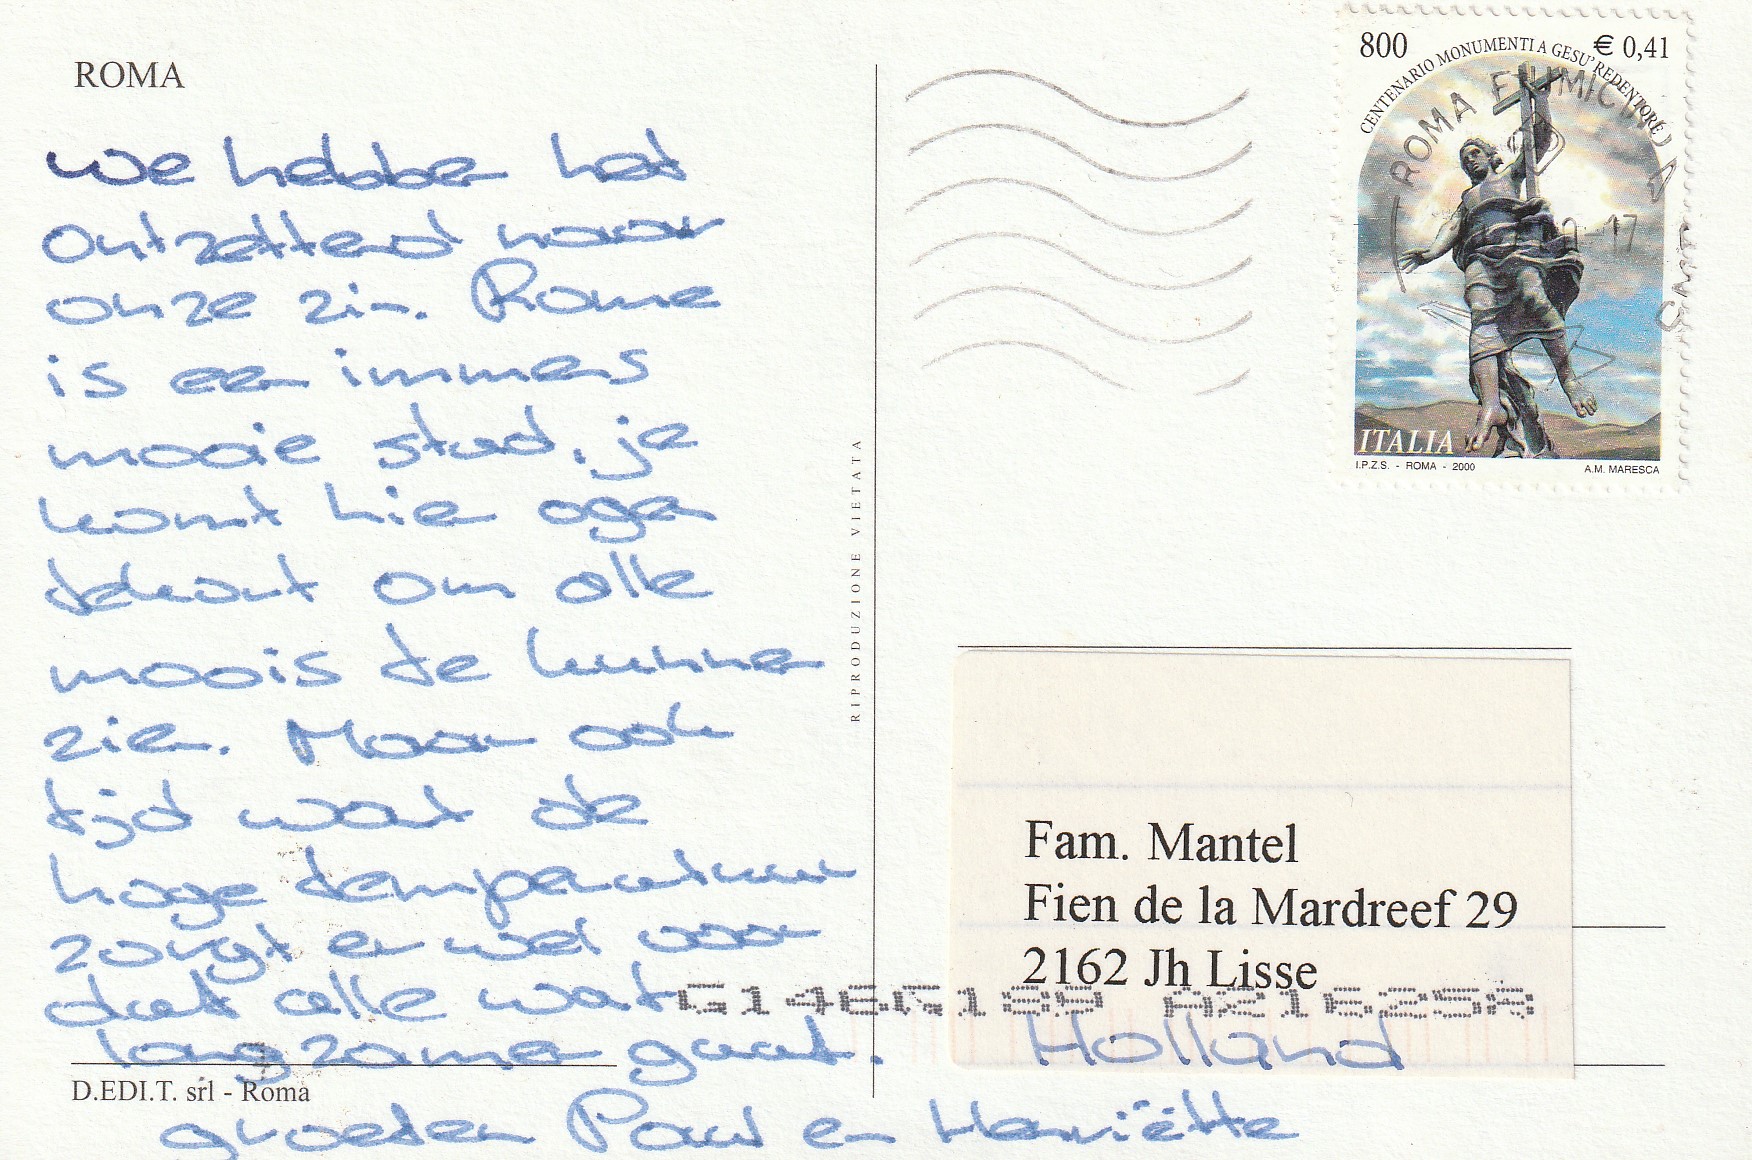 ROMA
We hebben het
ontzettend naar
onze zin. Rome
is een immens
mooie stad, je
komt hier ogen
tekort om alle
moois te kunnen
zien. Maar ook
tijd want de
hoge temperatuur
zorgt er wel voor
dat alle wat
langzamer gaat.
groeten Paul en Henriëtte
D.EDI.T. srl - Roma
RIPRODUZIONE VIETATA
800 € 0,41
CENTENARIO MONUMENTI A GESU' REDENTORE
ROMA FIUMICINO
ITALIA
I.P.Z.S. - ROMA - 2000 A.M. MARESCA
Fam. Mantel
Fien de la Mardreef 29
2162 Jh Lisse
Holland